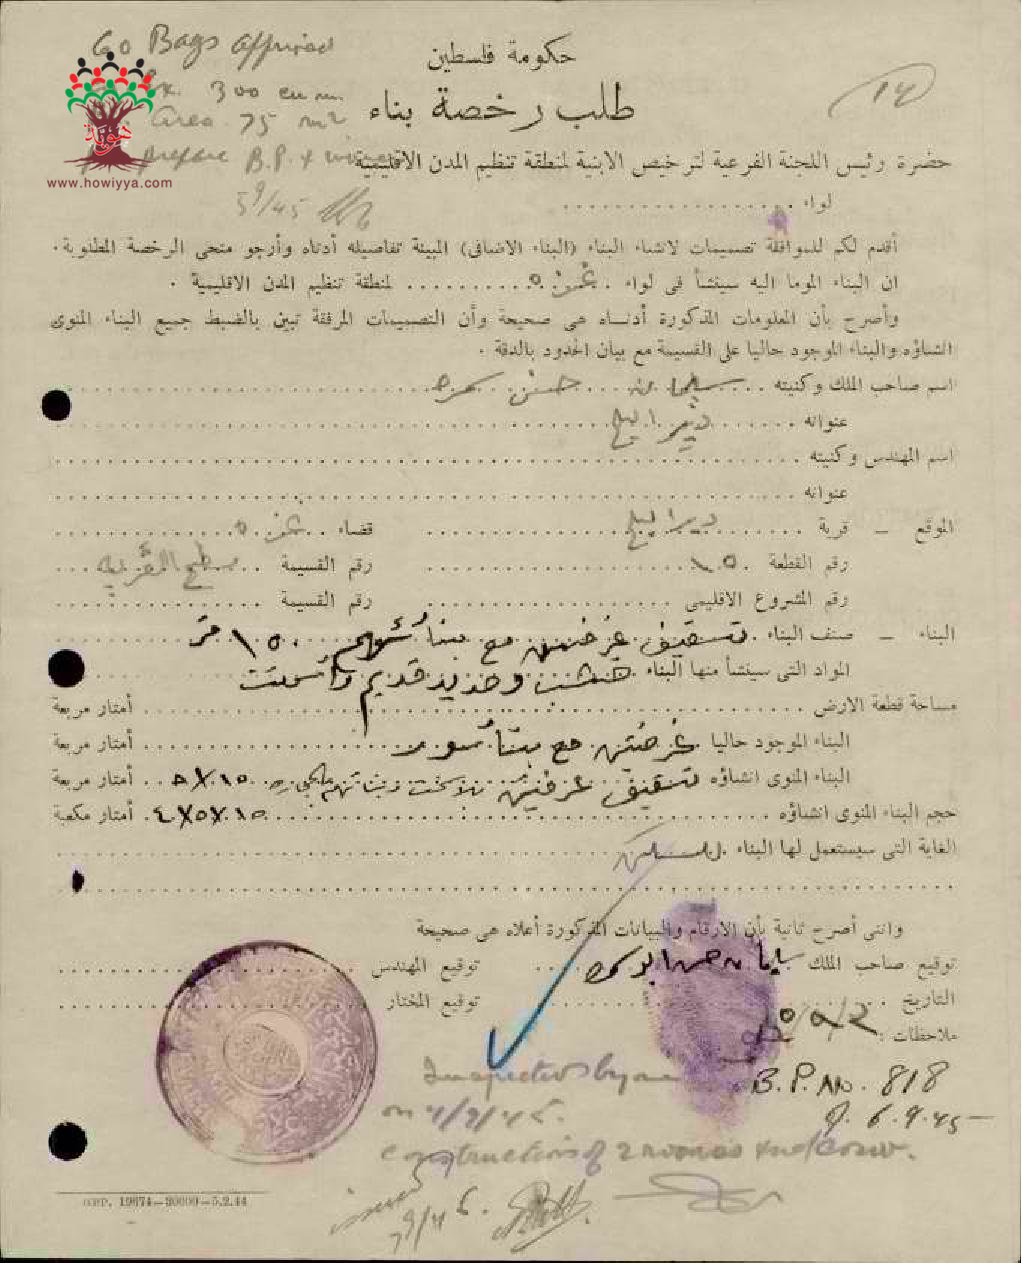 60 Bags approved
Ex. 300 cu m.
Area 75 m2
prepare B.P. &
5/9/45
www.howiyya.com
هوية
حكومة فلسطين
14
طلب رخصة بناء
حضرة رئيس اللجنة الفرعية لترخيص الابنية لمنطقة تنظيم المدن الاقليمية
لواء
أقدم لكم للموافقة تصميمات لانشاء البناء (البناء الاضافى) المبينة تفاصيله أدناه وأرجو منحى الرخصة المطلوبة.
ان البناء الموما اليه سينشأ فى لواء غزة لمنطقة تنظيم المدن الاقليمية .
وأصرح بأن المعلومات المذكورة أدناه هى صحيحة وأن التصميمات المرفقة تبين بالضبط جميع البناء المنوى
انشاؤه والبناء الموجود حاليا على القسيمة مع بيان الحدود بالدقة .
اسم صاحب الملك وكنيته حسن
عنوانه دير البلح
اسم المهندس وكنيته
عنوانه
الموقع — قرية دير البلح قضاء غزة
رقم القطعة ١٥ رقم القسيمة سطح القرية
رقم المشروع الاقليمى رقم القسيمة
البناء — صنف البناء تسقيف غرفتين مع بناء ١٥٠ متر
المواد التى سينشأ منها البناء وحديد قديم
مساحة قطعة الارض أمتار مربعة
البناء الموجود حاليا غرفتين مع بناء سور أمتار مربعة
البناء المنوى انشاؤه تسقيف غرفتين أمتار مربعة
حجم البناء المنوى انشاؤه أمتار مكعبة
الغاية التى سيستعمل لها البناء للسكن
وانى أصرح ثانية بأن الارقام والبيانات المذكورة أعلاه هى صحيحة
توقيع صاحب الملك توقيع المهندس
التاريخ توقيع المختار
ملاحظات :
Inspected by me
B.P. No. 818
on 4/9/45.
d. 6.9.45
Construction of 2 rooms and
GPP. 19674—30000—5.2.44